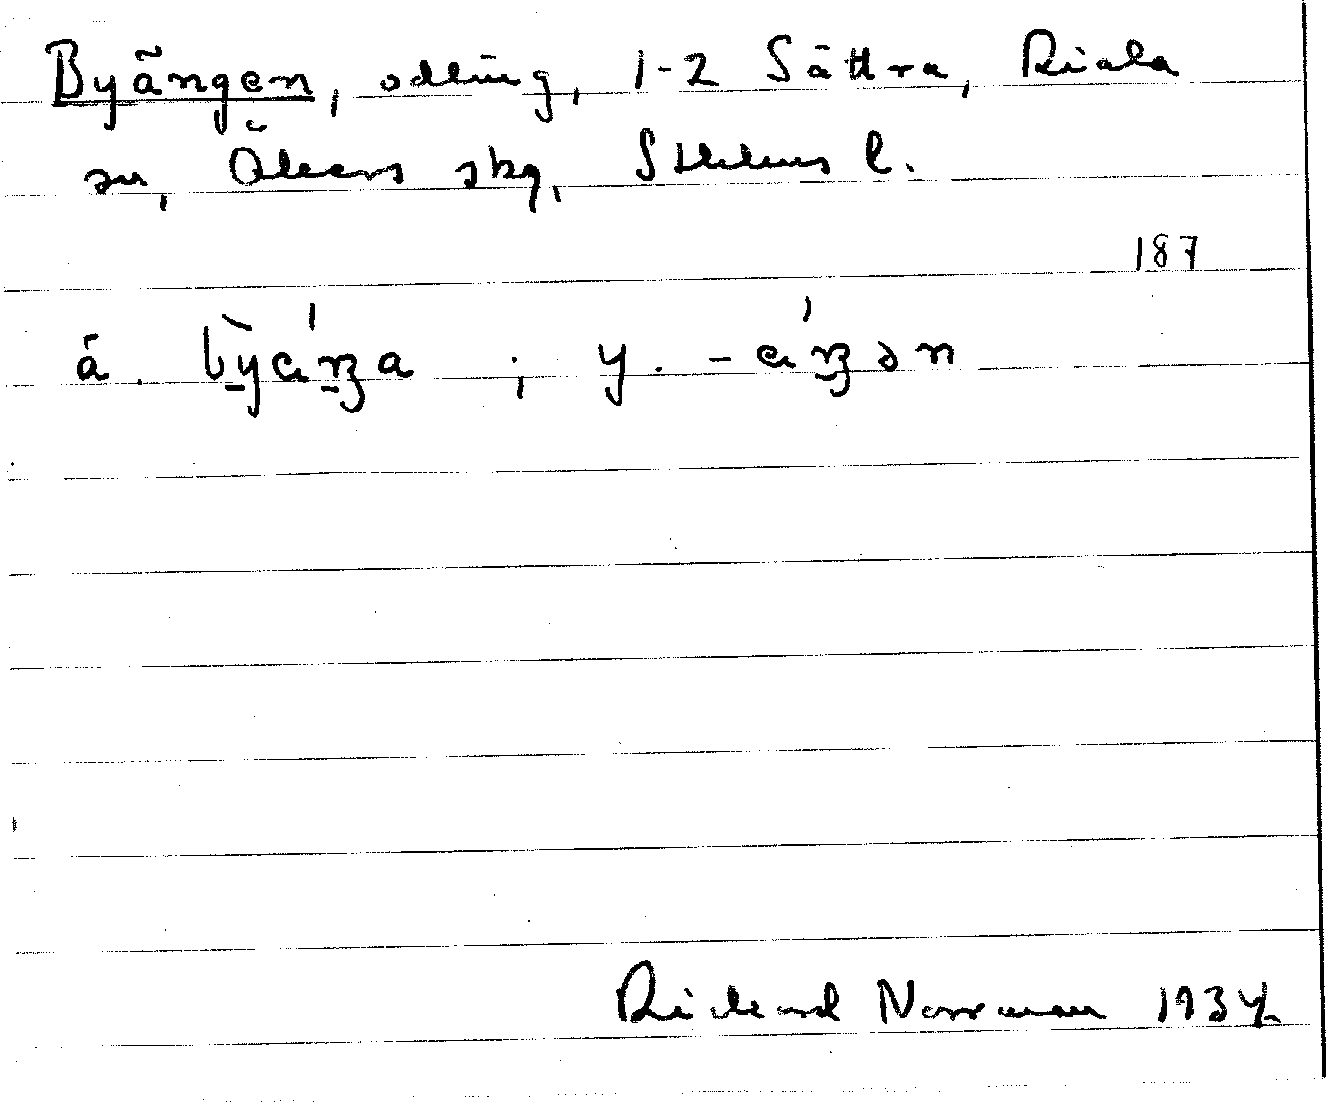 Byängen, odling, 1-2 Sättra, Riala
sn, Åkers skg, Sthlms l.
187
ä. by̍äŋa ; y. -äŋən
Rickard Norrman 1934